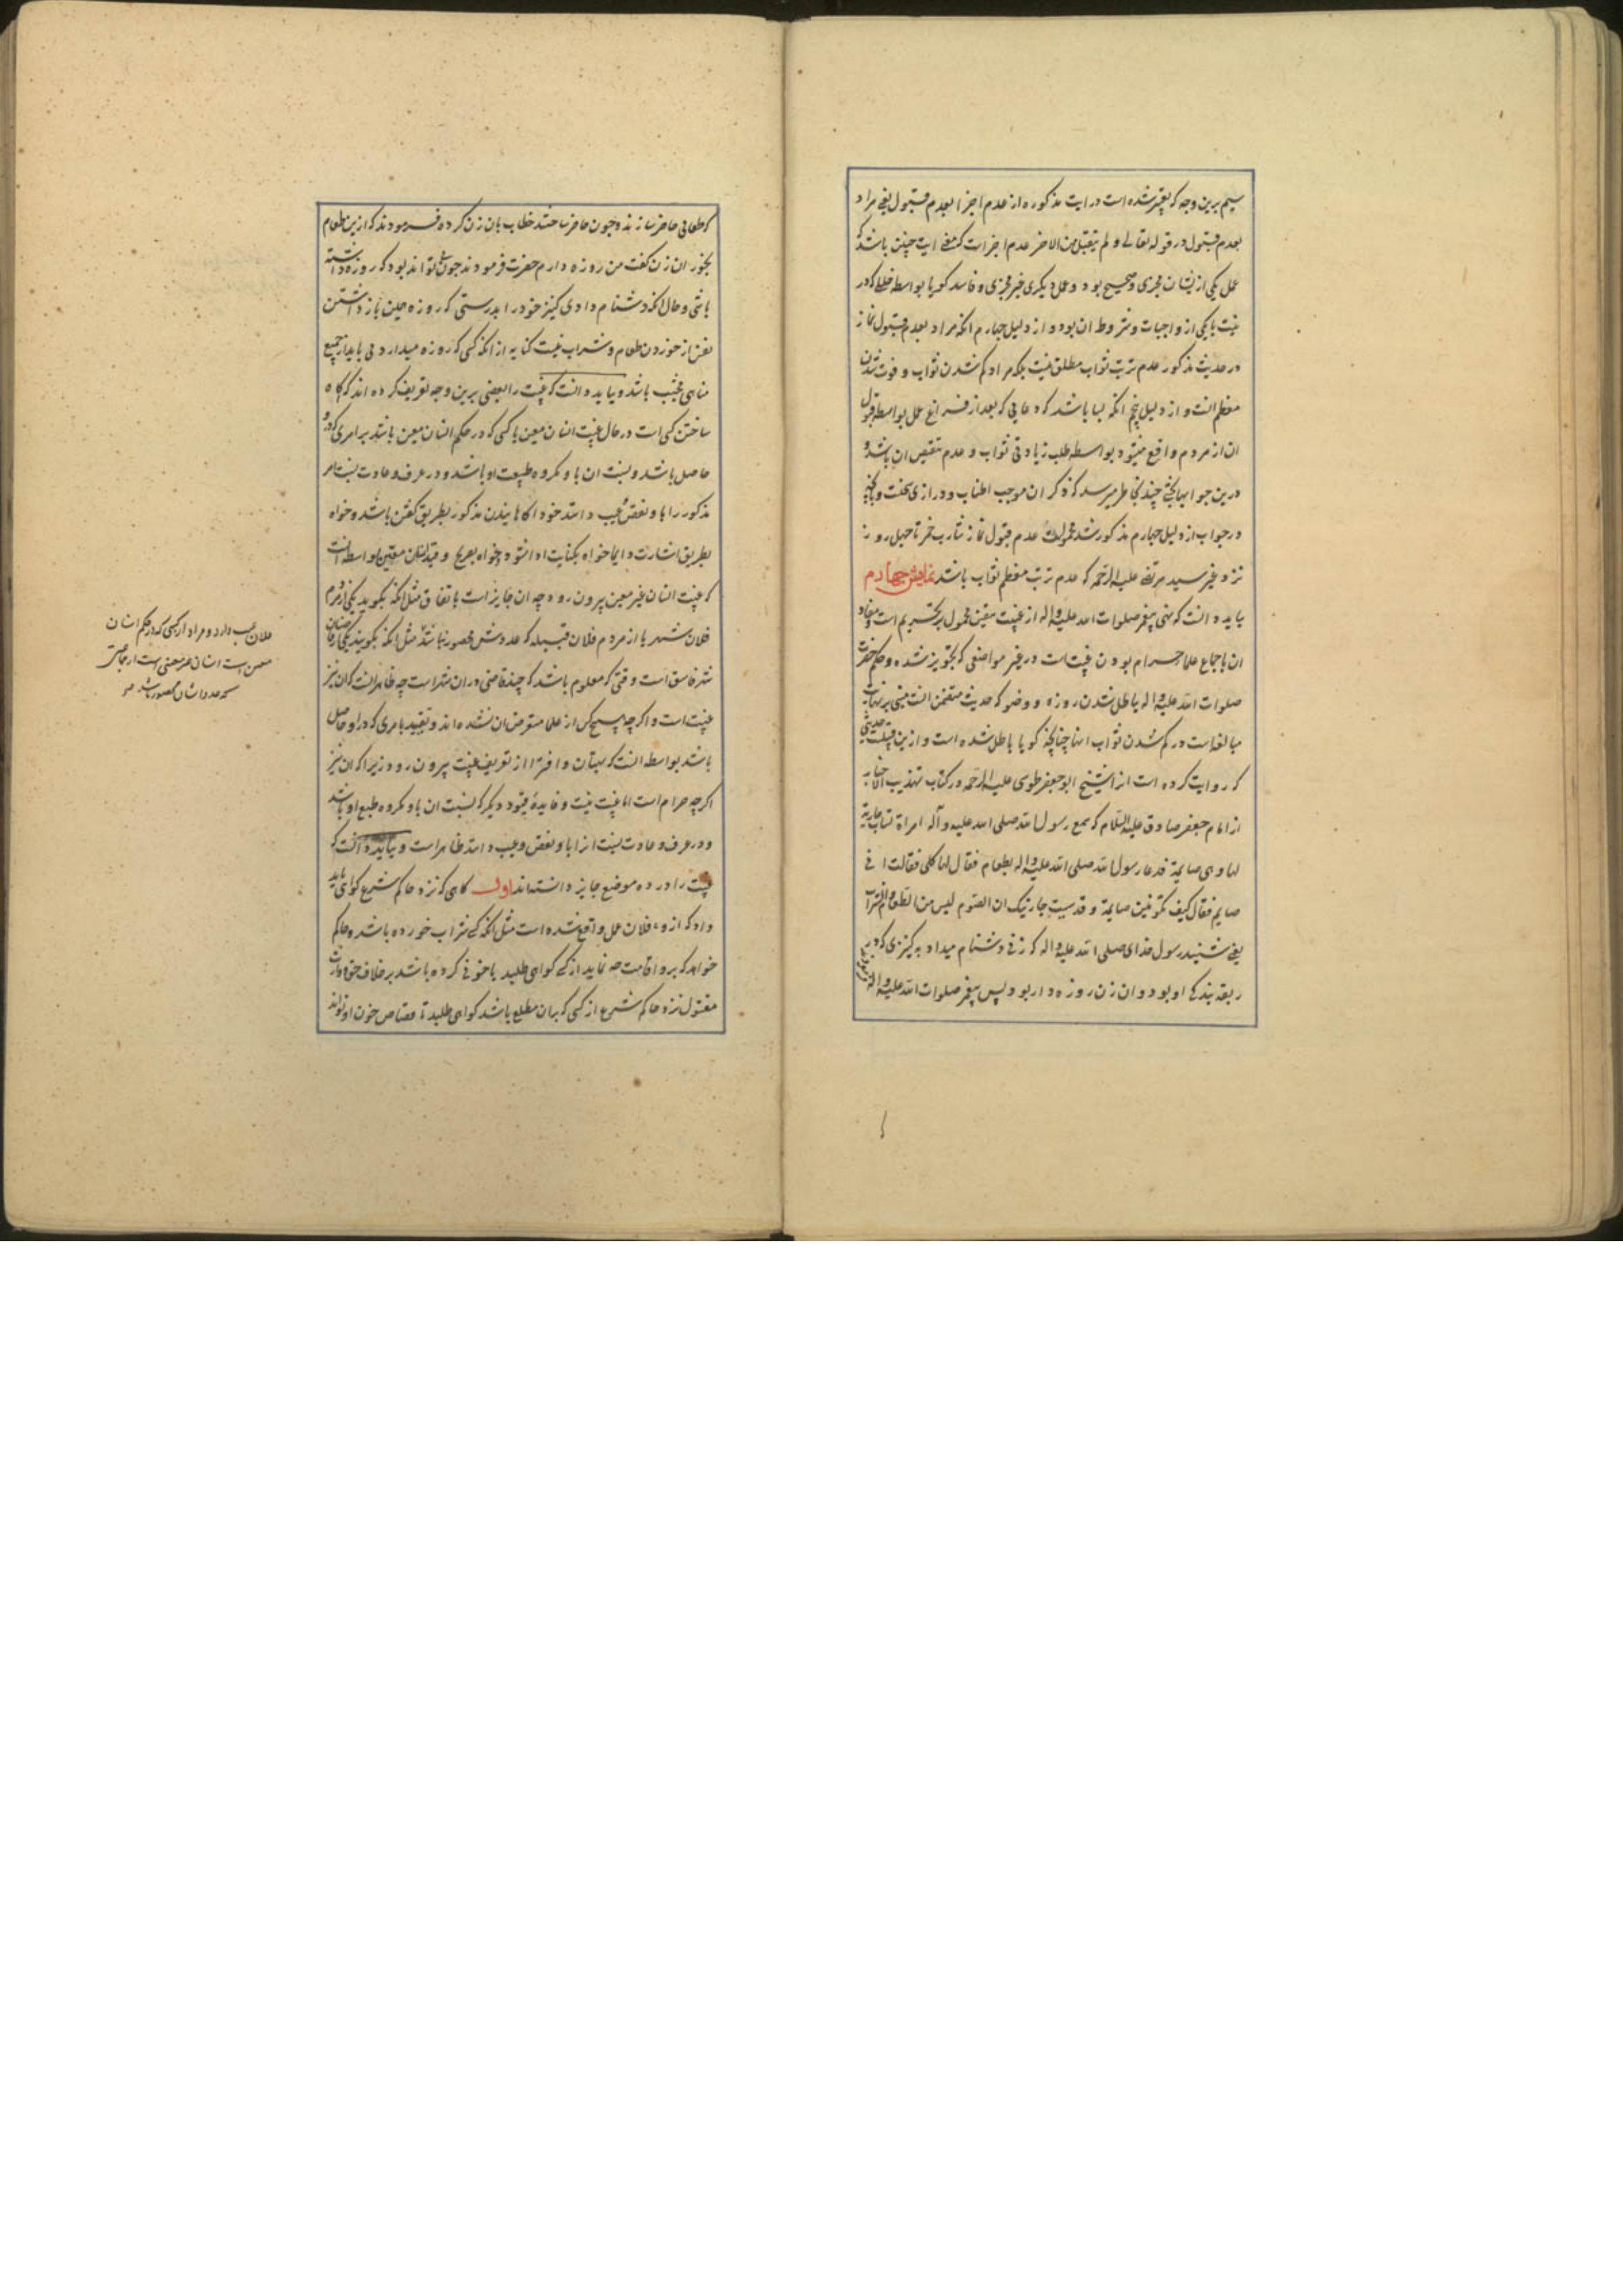 سیم برین وجه که تعبیر شده است در ایت مذکوره از عدم اجزا بعدم قبول یعنی مراد
بعدم قبول در قوله تعالی و لم یتقبل من الاخر عدم اجزاست که معنی ایت چنین باشد که
عمل یکی ازیشان مجزی و صحیح بود و عمل دیگری غیر مجزی و فاسد کویا بواسطه خللی که در
نیت یا یکی از واجبات و شروط ان بود و از دلیل چهارم انکه مراد بعدم قبول نماز
در حدیث مذکور عدم ترتب ثواب مطلق نیست بلکه مراد کم شدن ثواب و فوت شدن
معظم انست و از دلیل پنجم انکه بسا باشد که دعایی که بعد از فراغ عمل بواسطه قبول
ان از مردم واقع میشود بواسطه طلب زیادتی ثواب و عدم تنقیص ان باشد و
درین جوابها بحثی چند بخاطر میرسد که ذکر ان موجب اطناب و درازی سخنست و بانچه
در جواب از دلیل چهارم مذکور شد محمولست عدم قبول نماز شارب خمر تا چهل روز
نزد غیر سید مرتضی علیه الرحمه که عدم ترتب معظم ثواب باشد نمایش چهارم
بباید دانست که نهی پیغمبر صلوات الله علیه واله از غیبت متقین محمول بر تحریم است و مفاد
ان باجماع علما حرام بودن غیبتست در غیر مواضعی که تجویز شده و حکم حضرت
صلوات الله علیه واله بباطل شدن روزه و وضو که حدیث متضمن انست مبنی بر نهایت
مبالغه است در کم شدن ثواب انها چنانچه کویا باطل شده است و ازین قبیلست حدیثی
که روایت کرده است انرا شیخ ابو جعفر طوسی علیه الرحمه در کتاب تهذیب الاخبار
از امام جعفر صادق علیه السلام که سمع رسول الله صلی الله علیه وآله امراة تساب جاریة
لها و هی صایمة فدعا رسول الله صلی الله علیه واله بطعام فقال لها کلی فقالت انی
صایم فقال کیف تکونین صایمة و قد سببت جاریتک ان الصوم لیس من الطعام و الشراب
یعنی شنید رسول خدای صلی الله علیه واله که زنی دشنام میداد به کنیزی که در
ربقه بندکی او بود و ان زن روزه دار بود پس پیغمبر صلوات الله علیه واله فرمودند
که طعامی حاضر سازند و چون حاضر ساختند خطاب بان زن کرده فرمودند که ازین طعام
بخور ان زن کفت من روزه دارم حضرت فرمودند چون تواند بود که روزه داشته
باشی و حال انکه دشنام دادی کنیز خود را بدرستی که روزه همین باز داشتن
نفس از خوردن طعام و شراب نیست کنایه از انکه کسی که روزه میدارد می باید از جمیع
مناهی مجتنب باشد و بباید دانست که غیبت را بعضی برین وجه تعریف کرده اند که اکاه
ساختن کسی است در حال غیبت انسان معین یا کسی که در حکم انسان معین باشد بر امری که در او
حاصل باشد و نسبت ان باو مکروه طبیعت او باشد و در عرف و عادت نسبت امر
مذکور را باو نقص و عیب دانند خود اکاهانیدن مذکور بطریق کفتن باشد و خواه
بطریق اشارت و ایما خواه بکنایت ادا شود و خواه بصریح و قید انسان معین بواسطه انست
که غیبت انسان غیر معین بیرون رود چه ان جایز است باتفاق مثل انکه بکوید یکی از مردم
فلان شهر یا از مردم فلان قبیله که عددش محصور نباشد مثل انکه بکویند یکی از قاضیان
شهر فاسق است وقتی که معلوم باشد که چند قاضی در ان شهر است چه ظاهر انست که ان نیز
غیبت است و اکر چه هیچکس از علما متعرض ان نشده اند و تقیید بامری که در او حاصل
باشد بواسطه انست که بهتان و افترا از تعریف غیبت بیرون رود زیرا که ان نیز
اکر چه حرام است اما غیبت نیست و فایدهٔ قیود دیکر که نسبت ان باو مکروه طبع او باشد
و در عرف و عادت نسبت انرا باو نقص و عیب دانند ظاهر است و بباید دانست که
غیبت را در ده موضع جایز دانسته اند اول کاهی که نزد حاکم شرع کواهی باید
داد که از و فلان عمل واقع شده است مثل انکه کسی شراب خورده باشد و حاکم
خواهد که برو اقامت حد نماید از کسی کواهی طلبد یا خونی کرده باشد بر خلاف حق و وارث
مقتول نزد حاکم شرع از کسی که بدان مطلع باشد کواهی طلبد تا قصاص خون او تواند
فلان عیب دارد و مراد از کسی که در حکم انسان
معین است انسان غیر معینی است از جماعتی
که عدد ایشان محصور باشد